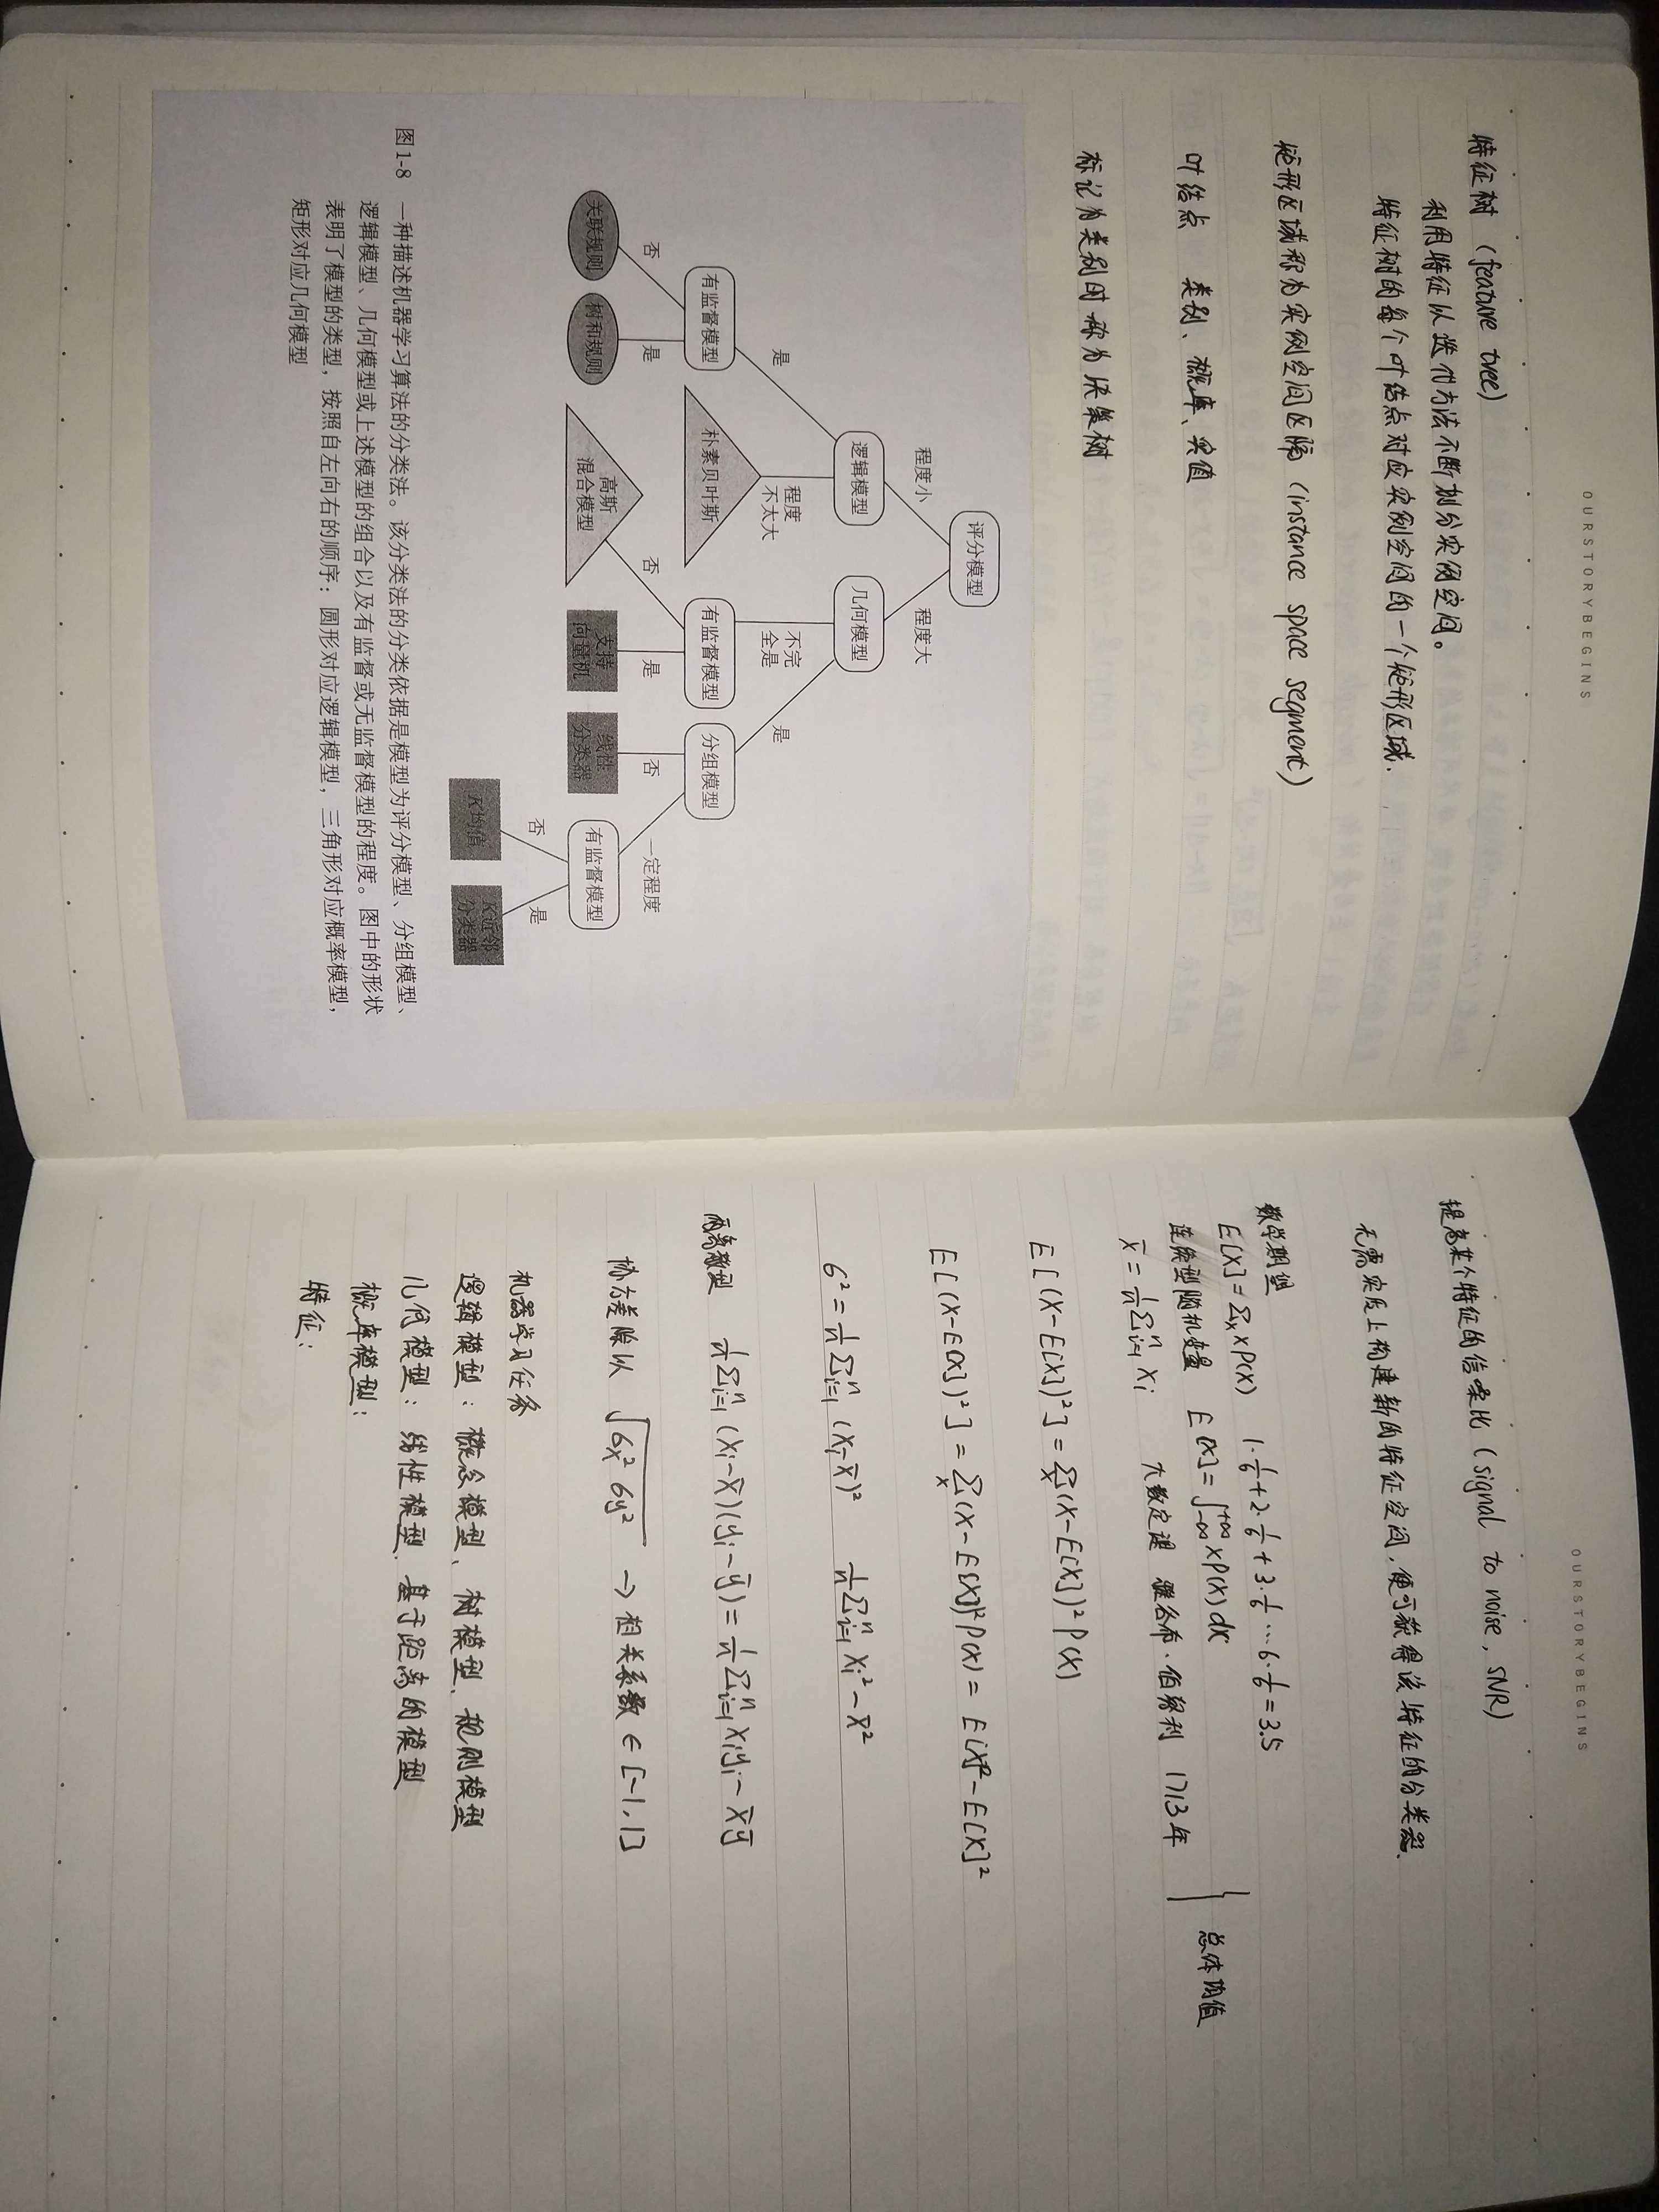 OURSTORYBEGINS
特征树 (feature tree)
利用特征以迭代方法不断划分实例空间。
特征树的每个叶结点对应实例空间的一个矩形区域.
矩形区域称为实例空间区隔 (instance space segment)
叶结点 类别、概率、实值
标记为类别时称为决策树
评分模型
程度小 程度大
逻辑模型 几何模型
是 程度 不完 是
不太大 全是
有监督模型 朴素贝叶斯 有监督模型 分组模型
否 是 否 是 否 一定程度
关联规则 树和规则 高斯 支持 线性 有监督模型
混合模型 向量机 分类器
否 是
K均值 K近邻
分类器
图1-8 一种描述机器学习算法的分类法。该分类法的分类依据是模型为评分模型、分组模型、
逻辑模型、几何模型或上述模型的组合以及有监督或无监督模型的程度。图中的形状
表明了模型的类型，按照自左向右的顺序：圆形对应逻辑模型，三角形对应概率模型，
矩形对应几何模型
OURSTORYBEGINS
提高某个特征的信噪比 (signal to noise, SNR)
无需实质上构建新的特征空间,便可获得该特征的分类器.
数学期望
E[X]=Σₓ xP(X) 1·1/6+2·1/6+3·1/6…6·1/6=3.5
连续型随机变量 E[X]=∫₋∞^+∞ xP(x)dx 总体均值
x̄=1/n Σᵢ₌₁ⁿ xᵢ 大数定理 雅各布·伯努利 1713年
E[(X-E[X])²]=Σₓ(X-E[X])²P(X)
E[(X-E[X])²]=Σₓ(X-E[X])²P(X)=E[X]²-E[X]²
6²=1/n Σᵢ₌₁ⁿ (xᵢ-x̄)² 1/n Σᵢ₌₁ⁿ xᵢ²-x̄²
两离散型 1/n Σᵢ₌₁ⁿ (xᵢ-x̄)(yᵢ-ȳ)=1/n Σᵢ₌₁ⁿ xᵢyᵢ-x̄ȳ
协方差除以 √(6x² 6y²) → 相关系数 ∈ [-1,1]
机器学习任务
逻辑模型: 概念模型、树模型、规则模型
几何模型: 线性模型、基于距离的模型
概率模型:
特征: